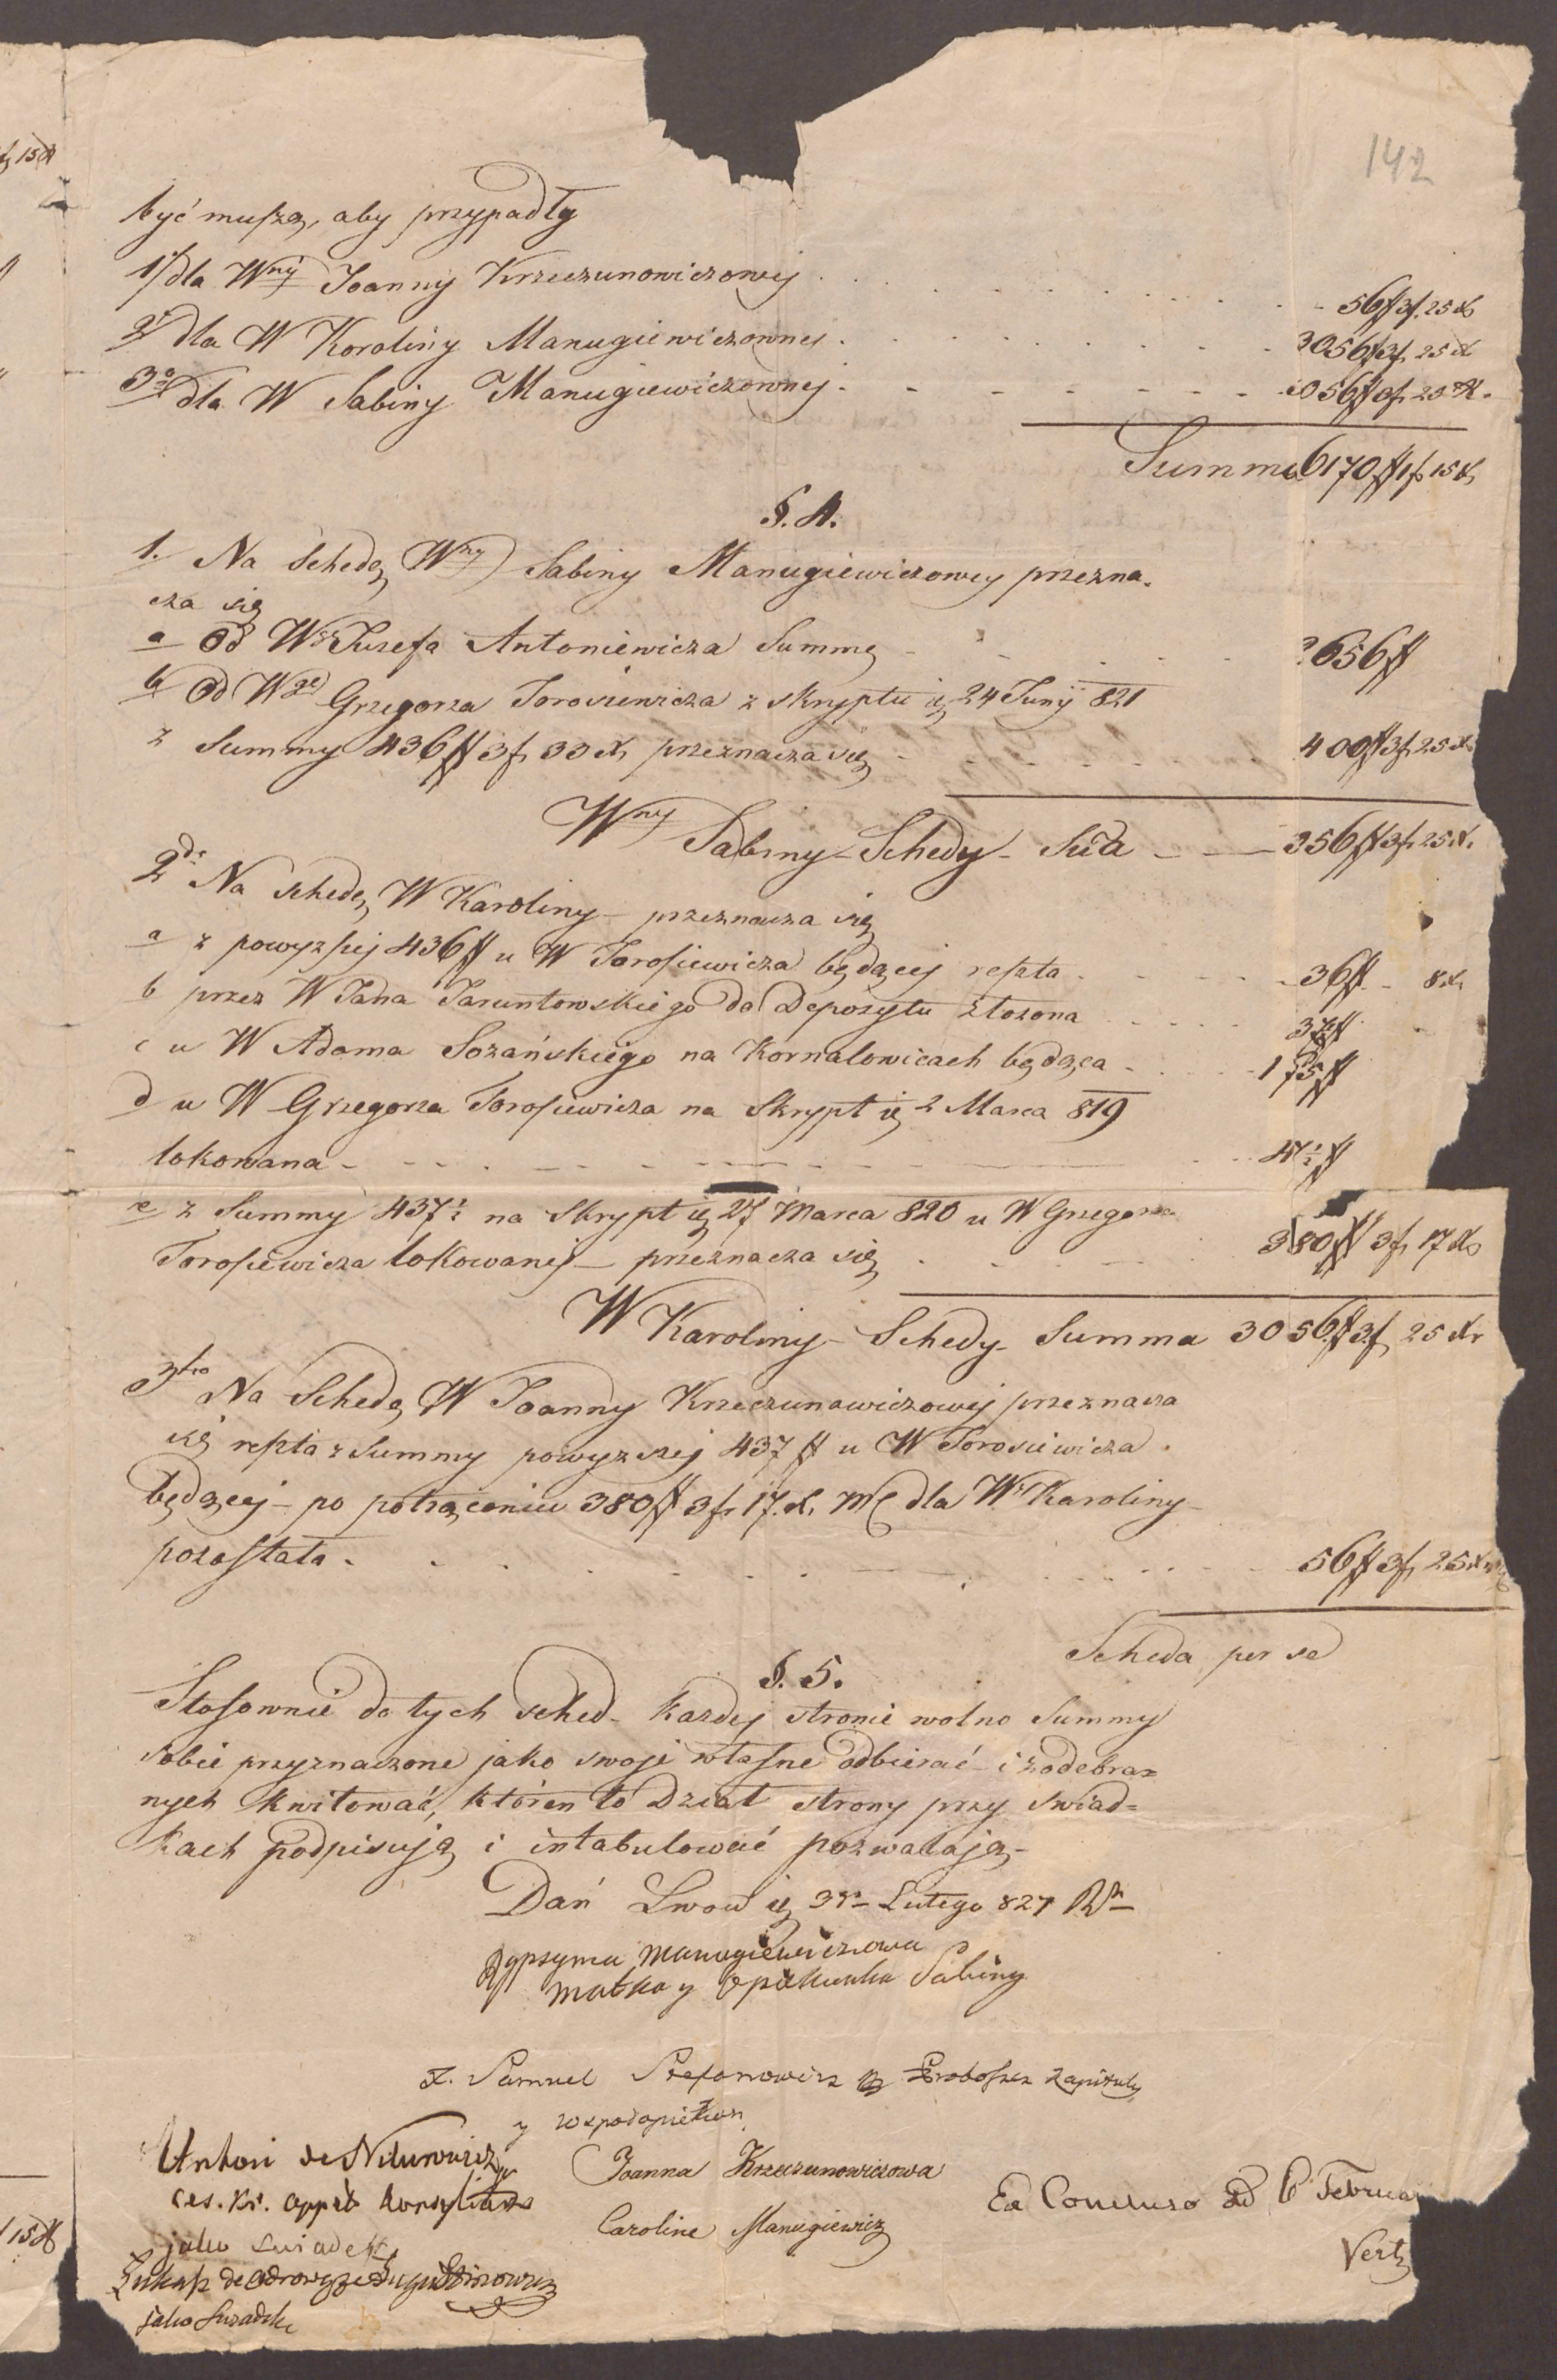 142
być muszą, aby przypadły
1) dla Wny Joanny Krzeczunowiczowej . . . . 56 ff 3 f. 25 x
2° dla W Karoliny Manugiewiczownej . . . . 3056 ff 3 f. 25 x
3° dla W Sabiny Manugiewiczownej . . . . 056 ff 3 f. 25 x.
Summa 6170 ff 1 f 15 x
§. 4.
1. Na Schedę Wny Sabiny Manugiewiczowey przezna-
cza się
a Od Wo Juzefa Antoniewicza Summę . . . 2656 ff
b Od Wgo Grzegorza Torosiewicza z skryptu 24 Juny 821
z Summy 436 ff 3 f 33 x przeznacza się . . . 400 ff 3 f 25 x
Wny Sabiny Schedy Sūa — 356 ff 3 f 25 x.
2do Na schedę W Karoliny – przeznacza się
a z powyzszej 436 ff u W Torosiewicza będącej reszta . . . 36 ff – 8 x
b przez W Jana Taruntowskiego do Depozytu złożona . . .
c u W Adama Sozańskiego na Kornalowicach będąca . . . 175 ff
d u W Grzegorza Torosiewicza na Skrypt 2 Marca 819
lokowana – – –
e z Summy 437 ½ na Skrypt 27 Marca 820 u W Grzegorza
Torosiewicza lokowanej – przeznacza się . . . 380 ff 3 f 17 x
W Karoliny – Schedy Summa 3056 ff 3 f 25 xr
3tio Na Schedę W Joanny Krzeczunowiczowej przeznacza
się reszta z Summy powyzszej 437 ff u W Torosiewicza
będącej – po potrąceniu 380 ff 3 f 17 x. MC dla Wny Karoliny –
pozostała . . . 56 ff 3 f 25 x
Scheda per se
§. 5.
Stosownie do tych sched – Kazdej stronie wolno Summy
sobie przyznaczone jako swoje własne odbierać – i z odebra=
nych kwitować, któren to Dział strony przy swiad=
kach podpisują i intabulować pozwalają –
Dań Lwow 3go Lutego 827 Ru
Rypsyma Manugiewiczowa
matka y Opiekunka Sabiny
X. Samuel Stefanowicz Proboszcz Kapituły
y Wspołopiekun
Antoni de Nikorowicz
ces. Kr. appel. Konsyliarz
jako Swiadek
Joanna Krzeczunowiczowa
Caroline Manugiewicz
Ex Concluso Februar
Vert
Łukasz de
jako Swiadek
15 x